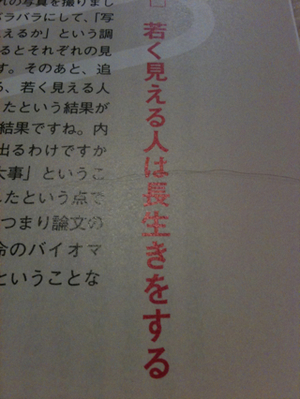 □ 若く見える人は長生きをする
れの写真を撮りまし
ラバラにして、「写
えるか」という調
るとそれぞれの見
す。そのあと、追
る、若く見える人
たという結果が
結果ですね。内
出るわけですか
大事」というこ
したという点で
つまり論文の
命のバイオマ
ということな